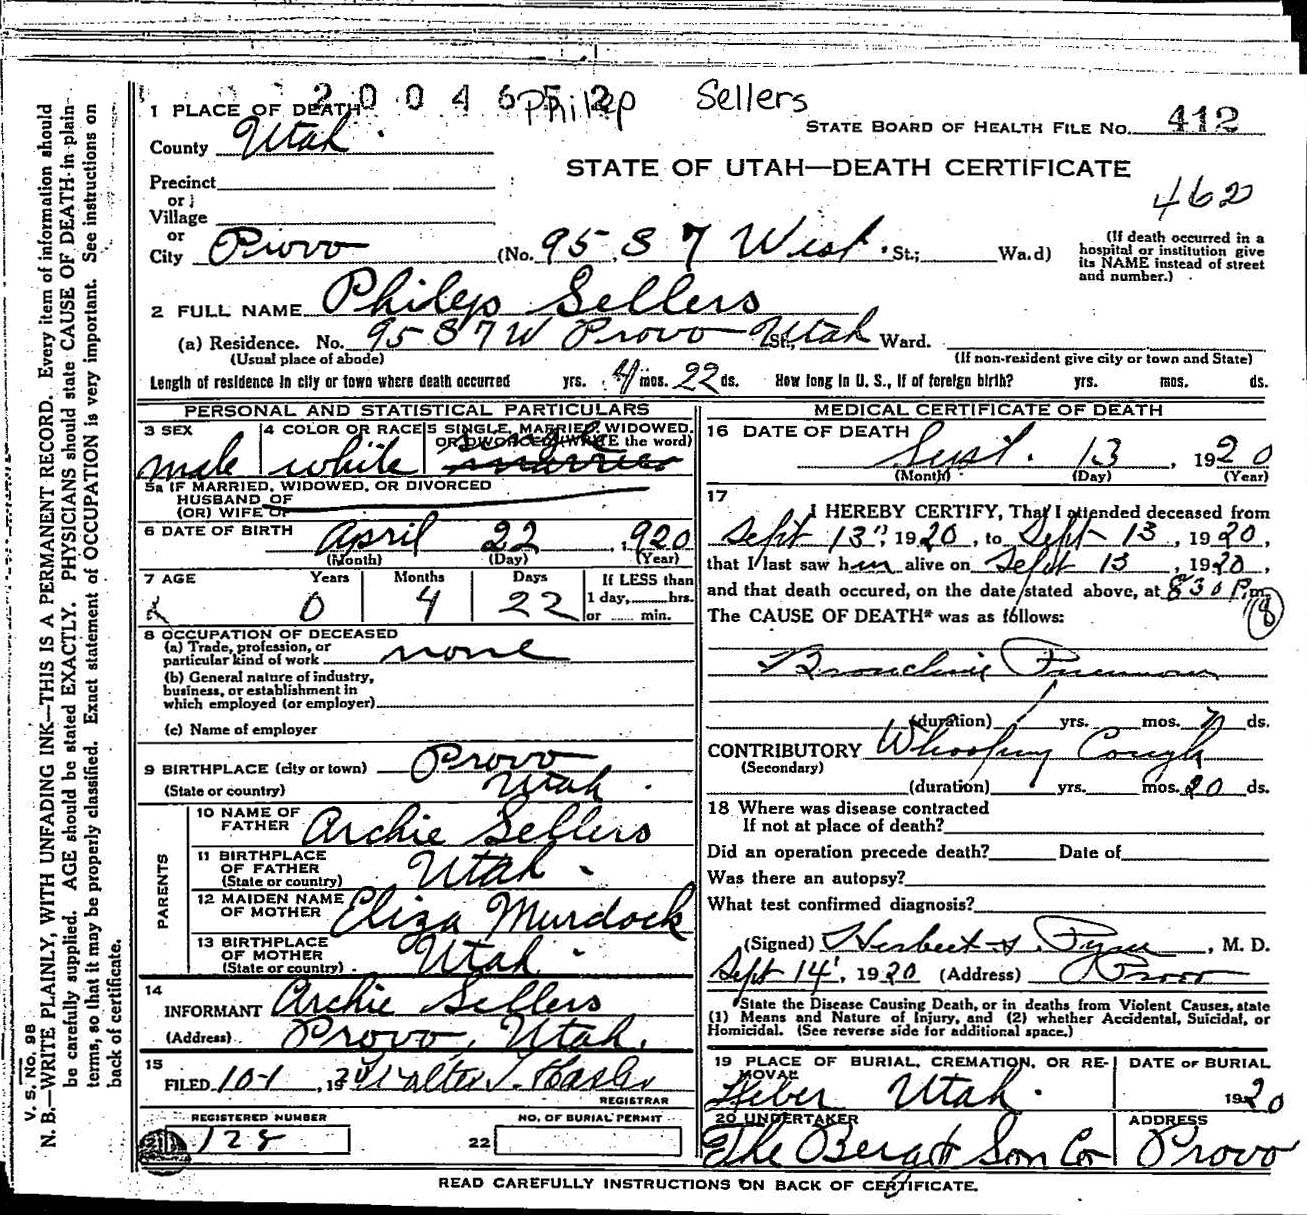 2004652 Philip Sellers
1 PLACE OF DEATH
STATE BOARD OF HEALTH FILE No. 412
County Utah
STATE OF UTAH—DEATH CERTIFICATE
Precinct
or
Village
462
or
City Provo (No. 95 S 7 West St.; Ward)
(If death occurred in a
hospital or institution give
its NAME instead of street
and number.)
2 FULL NAME Philip Sellers
(a) Residence. No. 95 S 7 W Provo Utah St., Ward.
(Usual place of abode) (If non-resident give city or town and State)
Length of residence in city or town where death occurred yrs. 4 mos. 22 ds. How long in U. S., if of foreign birth? yrs. mos. ds.
PERSONAL AND STATISTICAL PARTICULARS
3 SEX 4 COLOR OR RACE 5 SINGLE, MARRIED, WIDOWED,
OR DIVORCED (WRITE the word)
male white single married
5a IF MARRIED, WIDOWED, OR DIVORCED
HUSBAND OF
(OR) WIFE OF
6 DATE OF BIRTH April 22, 1920
(Month) (Day) (Year)
7 AGE Years Months Days If LESS than
1 day, hrs.
or min.
0 4 22
8 OCCUPATION OF DECEASED
(a) Trade, profession, or
particular kind of work none
(b) General nature of industry,
business, or establishment in
which employed (or employer)
(c) Name of employer
9 BIRTHPLACE (city or town) Provo
(State or country) Utah
PARENTS
10 NAME OF
FATHER Archie Sellers
11 BIRTHPLACE
OF FATHER
(State or country) Utah
12 MAIDEN NAME
OF MOTHER Eliza Murdock
13 BIRTHPLACE
OF MOTHER
(State or country) Utah
14
INFORMANT Archie Sellers
(Address) Provo, Utah.
15
FILED 10-1, 19 Walter
REGISTRAR
REGISTERED NUMBER
128
22 NO. OF BURIAL PERMIT
MEDICAL CERTIFICATE OF DEATH
16 DATE OF DEATH
Sept. 13, 1920
(Month) (Day) (Year)
17
I HEREBY CERTIFY, That I attended deceased from
Sept 13", 1920, to Sept 13, 1920,
that I last saw him alive on Sept 13, 1920,
and that death occured, on the date stated above, at 830 P.m.
8
The CAUSE OF DEATH* was as follows:
Bronchial Pneumonia
(duration) yrs. mos. 7 ds.
CONTRIBUTORY Whooping Cough
(Secondary)
(duration) yrs. mos. 20 ds.
18 Where was disease contracted
If not at place of death?
Did an operation precede death? Date of
Was there an autopsy?
What test confirmed diagnosis?
(Signed) Herbert S. Pyne, M. D.
Sept 14, 1920 (Address) Provo
*State the Disease Causing Death, or in deaths from Violent Causes, state
(1) Means and Nature of Injury, and (2) whether Accidental, Suicidal, or
Homicidal. (See reverse side for additional space.)
19 PLACE OF BURIAL, CREMATION, OR RE-
MOVAL
Heber Utah.
DATE OF BURIAL
1920
20 UNDERTAKER
The Berg & Son Co
ADDRESS
Provo
READ CAREFULLY INSTRUCTIONS ON BACK OF CERTIFICATE.
V. S. No. 98
N. B.—WRITE PLAINLY, WITH UNFADING INK—THIS IS A PERMANENT RECORD. Every item of information should
be carefully supplied. AGE should be stated EXACTLY. PHYSICIANS should state CAUSE OF DEATH in plain
terms, so that it may be properly classified. Exact statement of OCCUPATION is very important. See instructions on
back of certificate.